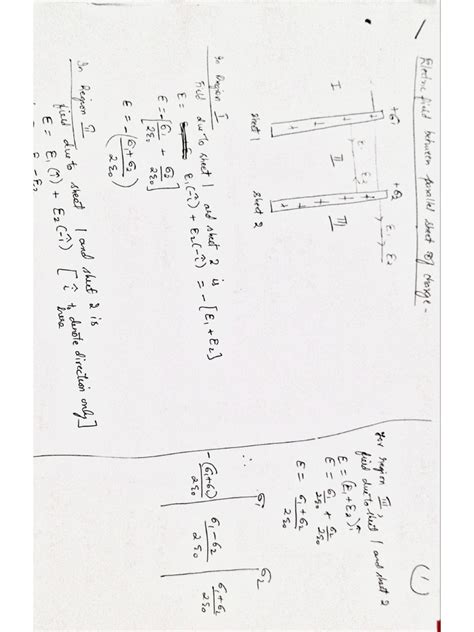 Electric field between parallel sheet of charge -
+σ1
+σ2
I
II
III
E1
E2
E1
E2
sheet 1
sheet 2
In Region I
field due to sheet 1 and sheet 2 is
E = E1(-î) + E2(-î) = -[E1+E2]
E = -[σ1/2ε0 + σ2/2ε0]
E = -(σ1+σ2/2ε0)
In Region II
field due to sheet 1 and sheet 2 is
E = E1(î) + E2(-î) [î to denote direction only]
E1 - E2
(1)
for region III,
field due to sheet 1 and sheet 2
E = (E1+E2)î
E = σ1/2ε0 + σ2/2ε0
E = σ1+σ2/2ε0
∴
σ1
σ2
-(σ1+σ2)/2ε0
σ1-σ2/2ε0
σ1+σ2/2ε0